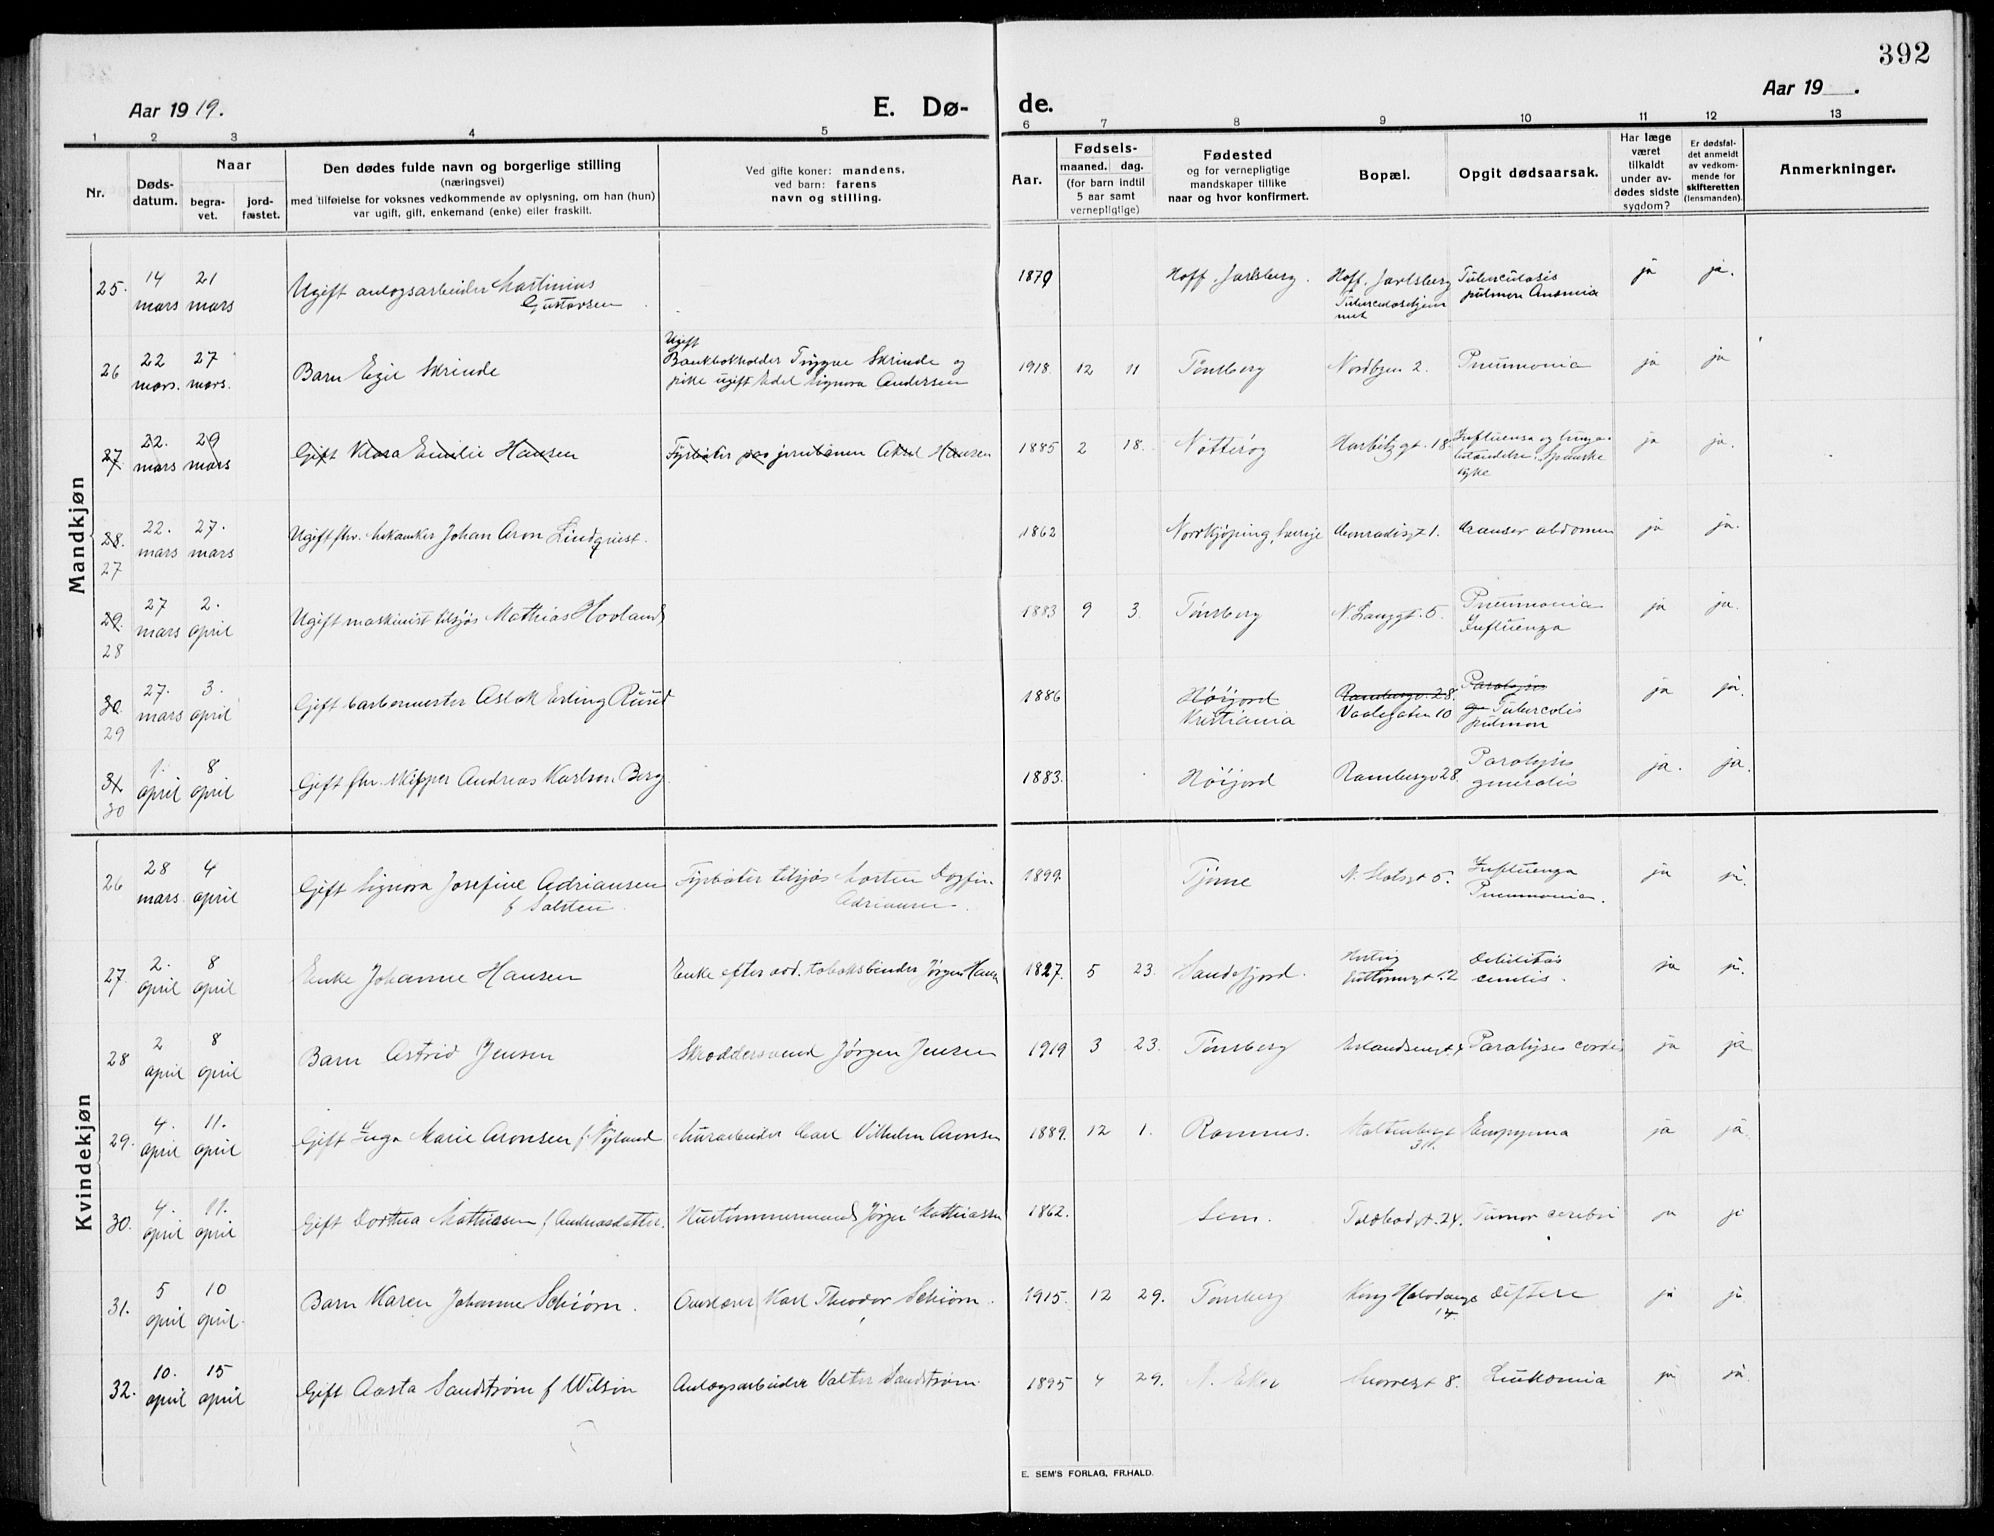 392
Aar 1919.
E. Dø-
de.
Aar 19 .
1 2 3 4 5 6 7 8 9 10 11 12 13
Nr.
Døds-
datum.
Naar
begra-
vet.
jord-
fæstet.
Den dødes fulde navn og borgerlige stilling
(næringsvei)
med tilføielse for voksnes vedkommende av oplysning, om han (hun)
var ugift, gift, enkemand (enke) eller fraskilt.
Ved gifte koner: mandens,
ved barn: farens
navn og stilling.
Aar.
Fødsels-
maaned. dag.
(for barn indtil
5 aar samt
vernepligtige)
Fødested
og for vernepligtige
mandskaper tillike
naar og hvor konfirmert.
Bopæl.
Opgit dødsaarsak.
Har læge
været
tilkaldt
under av-
dødes sidste
sygdom?
Er dødsfal-
det anmeldt
av vedkom-
mende for
skifteretten
(lensmanden).
Anmerkninger.
Mandkjøn
25. 14 mars 21 mars Ugift anlegsarbeider Martinius Gustavsen 1870 Hoff, Jarlsberg. Hoff, Jarlsberg Tuberculosehjemmet Tuberculosis pulmon Anæmia ja ja.
26 22 mars. 27 mars. Barn Egil Skrinde Ugift Bankbokholder Trygve Skrinde og pike ugift Edel Signora Andersen 1918. 12 11 Tønsberg Nordbyen 2. Pneumonia ja ja
27. 22. mars 29 mars Gift Klara Emilie Hansen Fyrbøter paa jernbanen Aksel Hansen 1885 2 18. Nøtterøy 18. Influensa og lungebetændelse. Spanske syke ja ja.
28. 27 22. mars 27. mars Ugift fhv. Johan Aron Lindquist. 1862 Norrkjøping, Sverige Conradisgt 1. Cancer abdomen ja ja.
29. 28 27 mars 2. april Ugift maskinist tilsjøs Mathias Hovland 1883 9 3. Tønsberg N. Langgt. 5. Pneumonia Influenza ja ja.
30. 29 27. mars 3. april Gift barbermester Aslak Erling Ruud 1886 Høijord Kristiania Rambergv. 28. Vaalegaten 10 Paralysis ge Tubercolis pulmon ja ja.
31. 30 1. april 8 april Gift fhv. skipper Andreas Karlsen Berg. 1883. Høijord Rambergv 28. Paralysis generalis ja. ja.
Kvindekjøn
26 28 mars. 4 april Gift Signora Josefine Adriansen f Salsten Fyrbøter tilsjøs Morten Dagfin Adriansen. 1899. Tjøme N. Slotsgt 5. Influenza Pneumonia. ja ja.
27. 2. april 8 april Enke Johanne Hansen Enke efter avd. tobaksbinder Jørgen Hansen 1827. 5 23. Sandefjord. 12 Debilitas senilis. ja ja.
28 2 april 8 april Barn Astrid Jensen Skræddersvend Jørgen Jensen 1919 3 23. Tønsberg Erlandsensgt. 4 Paralysis cordis ja ja
29. 4. april 11. april Gift Inga Marie Aronsen f. Nyland. Murarbeider Carl Vilhelm Aronsen 1889. 12 1. Ramnes. 31. Empyema ja ja.
30. 4. april 11. april Gift Dorthea Mathiesen f. Andreasdatter. Hustømmermand Jørgen Mathiassen 1862. Sem. Tolbodgt. 24. Tumor cerebri ja ja
31. 5 april 10 april. Barn Karen Johanne Schiørn. Overlærer Karl Theodor Schiørn. 1915. 12 29. Tønsberg 14. Difteri ja ja
32. 10. april 15 april Gift Aasta Sandstrøm f Wilson Anlægsarbeider Valter Sandstrøm. 1895 4 29. Ø. Eker Snorresgt 8. Leukæmia ja ja.
E. SEM'S FORLAG, FR.HALD.